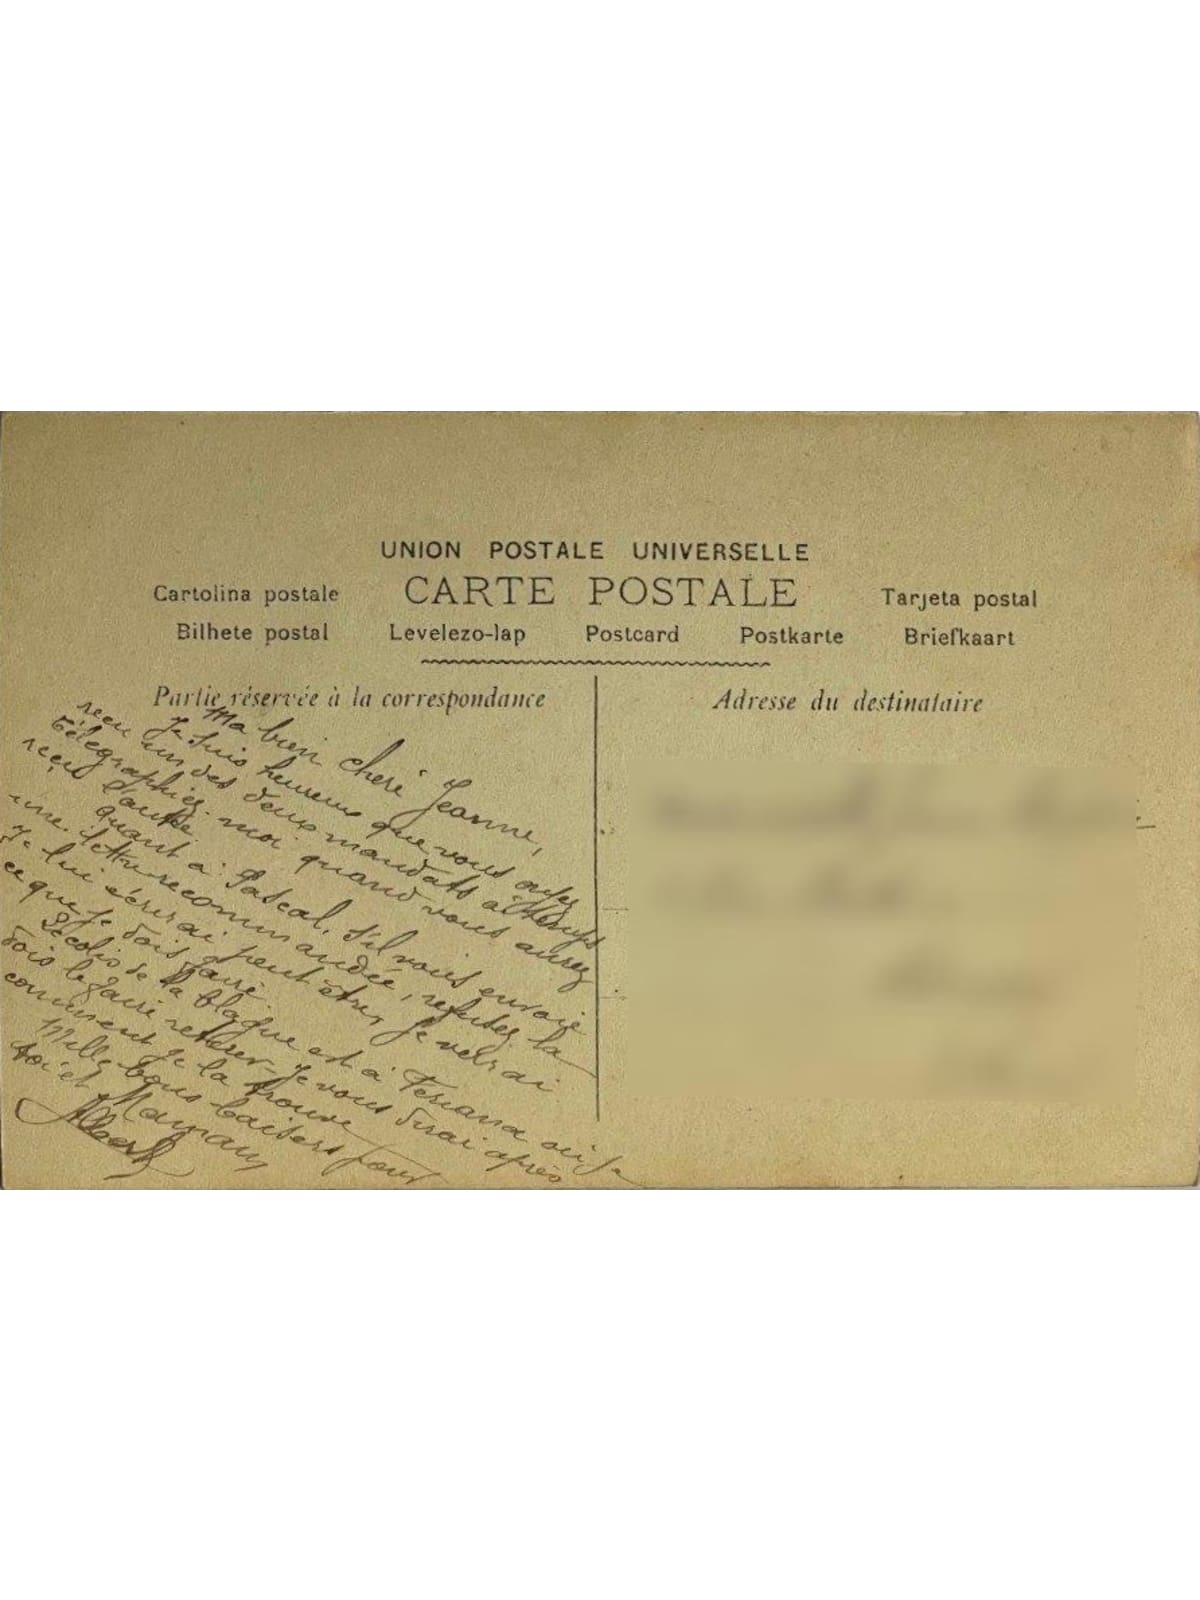 UNION POSTALE UNIVERSELLE
Cartolina postale CARTE POSTALE Tarjeta postal
Bilhete postal Levelezo-lap Postcard Postkarte Briefkaart
Partie réservée à la correspondance
Adresse du destinataire
Ma bien cheré Jeanne,
Je suis heureux que vous avez
reçu un des deux mandats à temps
télégraphiez-moi quand vous aurez
reçu l'autre.
quant à Pascal, s'il vous envoie
une lettre recommandée, refusez la
Je lui écrirai peut être, Je verrai
ce que je dois faire.
Le colis de la blague est à Feriana où je
dois le faire retirer. Je vous dirai après
comment je la trouve
Mille bons baisers pour
toi et Maman
Albert